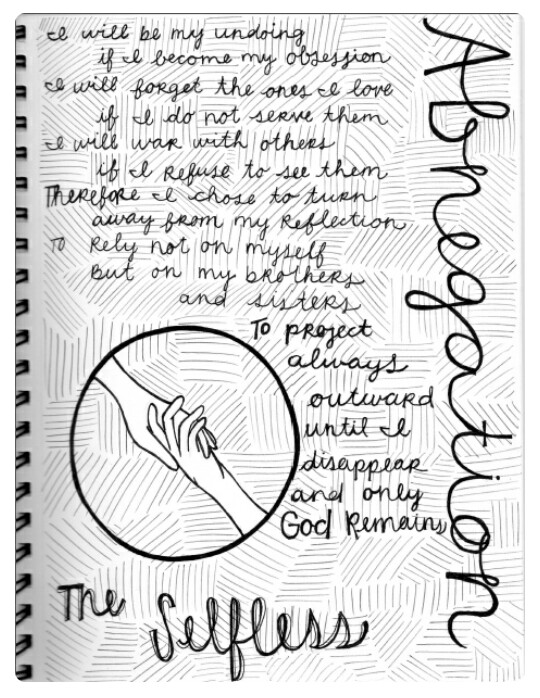 I will be my undoing
if I become my obsession
I will forget the ones I love
if I do not serve them
I will war with others
if I refuse to see them
Therefore I chose to turn
away from my reflection
To Rely not on myself
But on my brothers
and sisters
To project
always
outward
until I
disappear
and only
God Remains
Abnegation
The Selfless